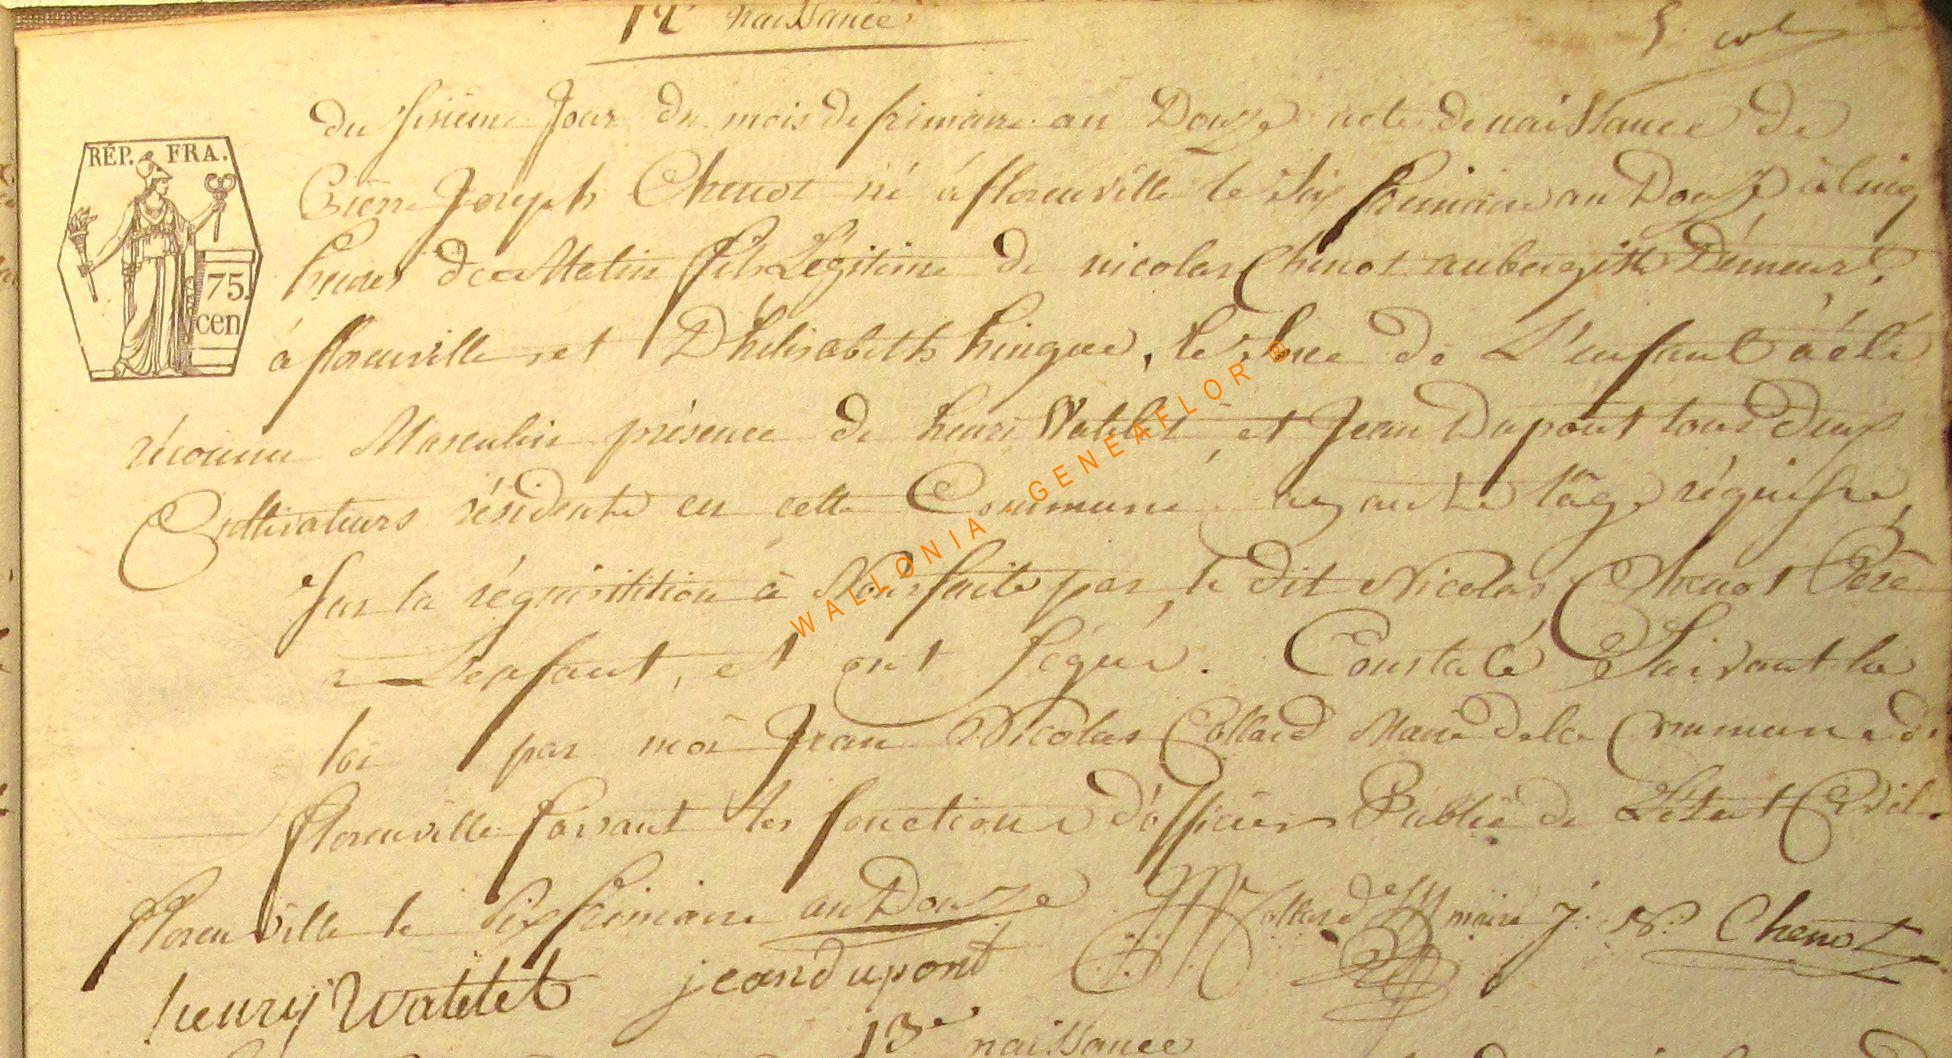 12e naissance
RÉP. FRA.
75.
cen
du sixième Jour du mois de frimaire an Douze acte de naissance de
Joseph Chenot né à florenville le Six frimaire an Douze à Cinq
heures du Matin fils Légitime de nicolas Chenot aubergiste Demeurt
à florenville et D'hélisabeth hingue, le Sexe de L'enfant à été
réconnu Masculin présence de henri Watelet et Jean Dupont tous deux
Cultivateurs résidents en cette Commune ayants l'âge réquise,
Sur la réquisitition à Nous faite par le dit Nicolas Chenot Père
L'enfant, et ontSégné. Constaté Suivant la
loi par moi Jean Nicolas Collard Maire de la Commune de
florenville faisant les fonctions d'officiers Public de L'état Civil.
florenville le Six frimaire an Douze Collard maire J. N. Chenot
henry Watelet jean dupont
13e naissance
WALLONIA GENEAFLOR ®